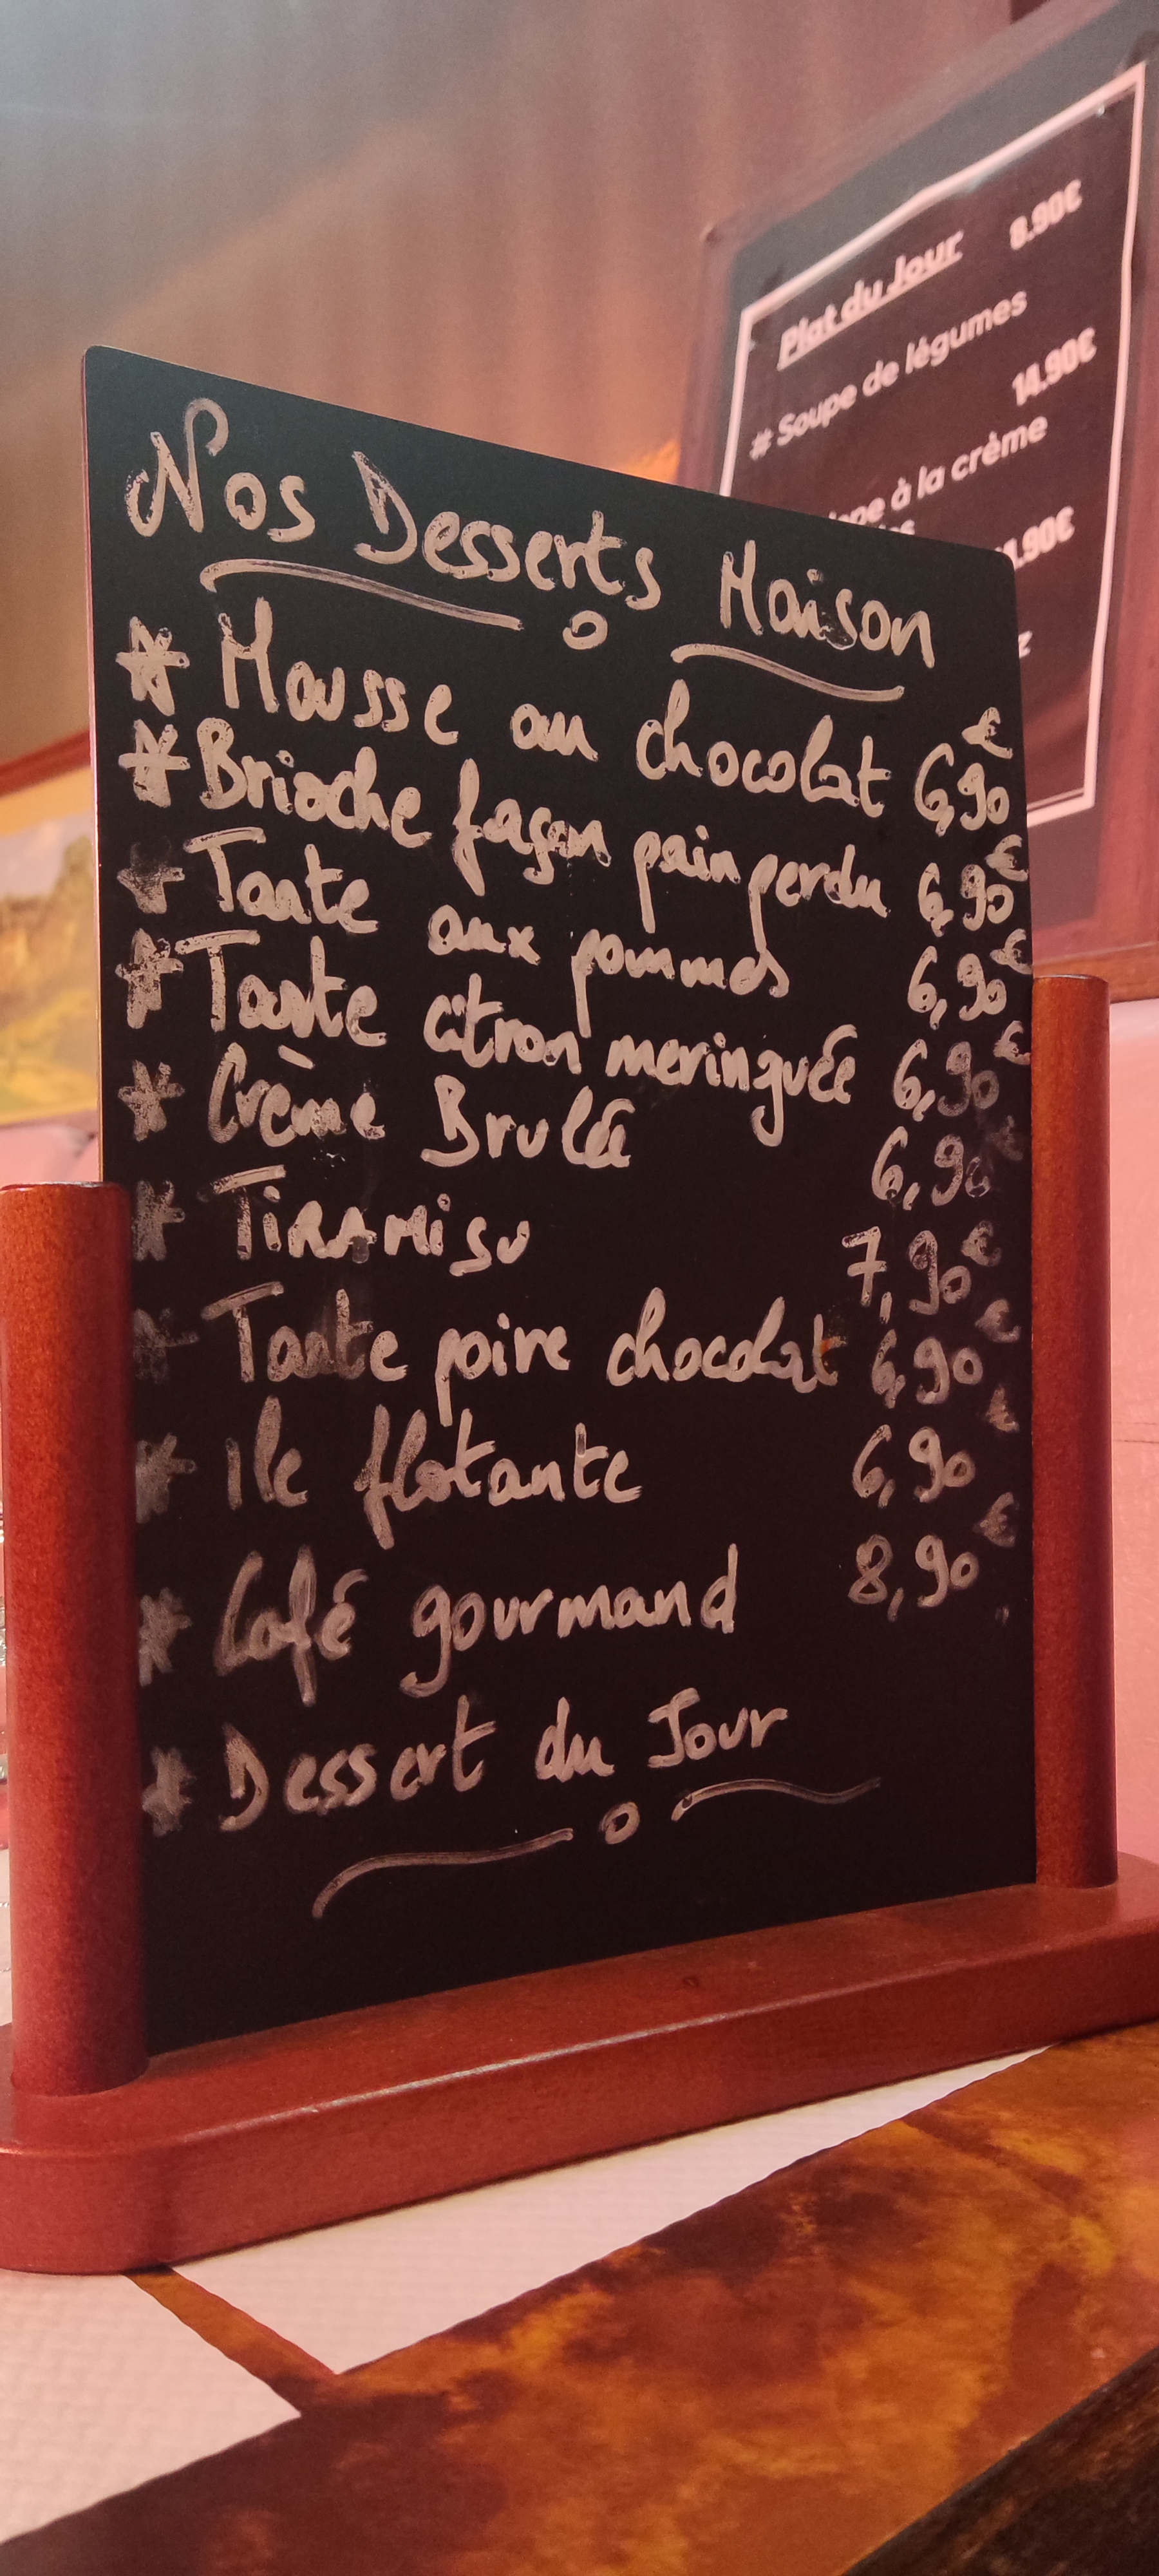 Nos Desserts Maison
* Mousse au chocolat 6,90€
* Brioche façon pain perdu 6,90€
* Tarte aux pommes 6,90€
* Tarte citron meringuée 6,90€
* Crème Brulée 6,90€
* TiRAMisu 7,90€
* Tarte poire chocolat 6,90€
* Ile flotante 6,90€
* Café gourmand 8,90€
* Dessert du Jour
Plat du Jour
8.90€
# Soupe de légumes
14.90€
à la crème